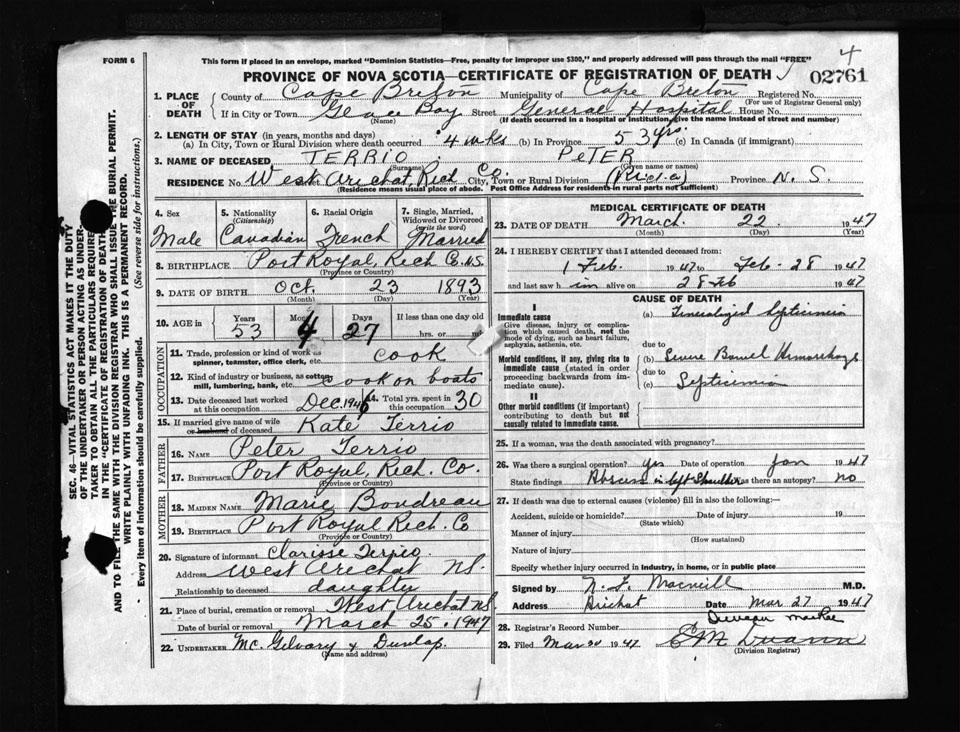 FORM 6
This form if placed in an envelope, marked "Dominion Statistics—Free, penalty for improper use $300," and properly addressed will pass through the mail "FREE"
4
PROVINCE OF NOVA SCOTIA—CERTIFICATE OF REGISTRATION OF DEATH
02761
1. PLACE OF DEATH County of Cape Breton Municipality of Cape Breton Registered No.
(For use of Registrar General only)
If in City or Town Glace Bay Street General Hospital House No.
(Name) (If death occurred in a hospital or institution, give the name instead of street and number)
2. LENGTH OF STAY (in years, months and days)
(a) In City, Town or Rural Division where death occurred 4 wks (b) In Province 53 yrs. (c) In Canada (if immigrant)
3. NAME OF DECEASED TERRIO PETER
(Surname) (Given name or names)
RESIDENCE No. West Arichat, Rich Co. Street City, Town or Rural Division Province N. S.
(Residence means usual place of abode. Post Office Address for residents in rural parts not sufficient)
4. Sex Male
5. Nationality (Citizenship) Canadian
6. Racial Origin French
7. Single, Married, Widowed or Divorced (write the word) Married
8. BIRTHPLACE Port Royal, Rich Co. N.S.
(Province or Country)
9. DATE OF BIRTH Oct. 23 1893
(Month) (Day) (Year)
10. AGE in Years 53 Months 4 Days 27 If less than one day old
hrs. or
OCCUPATION
11. Trade, profession or kind of work as spinner, teamster, office clerk, etc. cook
12. Kind of industry or business, as cotton mill, lumbering, bank, etc. cook on boats
13. Date deceased last worked at this occupation Dec. 1946 14. Total yrs. spent in this occupation 30
15. If married give name of wife or husband of deceased Kate Terrio
FATHER
16. NAME Peter Terrio
17. BIRTHPLACE Port Royal, Rich. Co.
(Province or Country)
MOTHER
18. MAIDEN NAME Marie Boudreau
19. BIRTHPLACE Port Royal Rich. Co
(Province or Country)
20. Signature of informant Clarisse Terrio.
Address West Arichat N.S.
Relationship to deceased daughter
21. Place of burial, cremation or removal West Arichat N.S.
Date of burial or removal March 25. 1947
22. UNDERTAKER Mc. Gilvary & Dunlap.
(Name and address)
MEDICAL CERTIFICATE OF DEATH
23. DATE OF DEATH March. 22 1947
(Month) (Day) (Year)
24. I HEREBY CERTIFY that I attended deceased from:
1 Feb. 1947 to Feb - 28 1947
and last saw him alive on 28 Feb 1947
CAUSE OF DEATH
I
Immediate cause
Give disease, injury or complication which caused death, not the mode of dying, such as heart failure, asphyxia, asthenia, etc.
(a) Generalized Septicimia
due to
Morbid conditions, if any, giving rise to immediate cause (stated in order proceeding backwards from immediate cause).
(b) Severe Bowel Hemorrhage
due to
(c) Septicimia
II
Other morbid conditions (if important) contributing to death but not causally related to immediate cause.
25. If a woman, was the death associated with pregnancy?
26. Was there a surgical operation? Yes Date of operation Jan 1947
State findings Abscess in left shoulder Was there an autopsy? no
27. If death was due to external causes (violence) fill in also the following:—
Accident, suicide or homicide? Date of injury 19
(State which)
Manner of injury
(How sustained)
Nature of injury
Specify whether injury occurred in industry, in home, or in public place
Signed by N. L. Macneill M.D.
Address Arichat Date Mar 27 1947
28. Registrar's Record Number
29. Filed Mar 1947
(Division Registrar)
SEC. 46—VITAL STATISTICS ACT MAKES IT THE DUTY
OF THE UNDERTAKER OR PERSON ACTING AS UNDER-
TAKER TO OBTAIN ALL THE PARTICULARS REQUIRED
IN THE "CERTIFICATE OF REGISTRATION OF DEATH"
AND TO FILE THE SAME WITH THE DIVISION REGISTRAR WHO SHALL ISSUE THE BURIAL PERMIT.
WRITE PLAINLY WITH UNFADING INK. THIS IS A PERMANENT RECORD.
Every item of information should be carefully supplied. (See reverse side for instructions.)